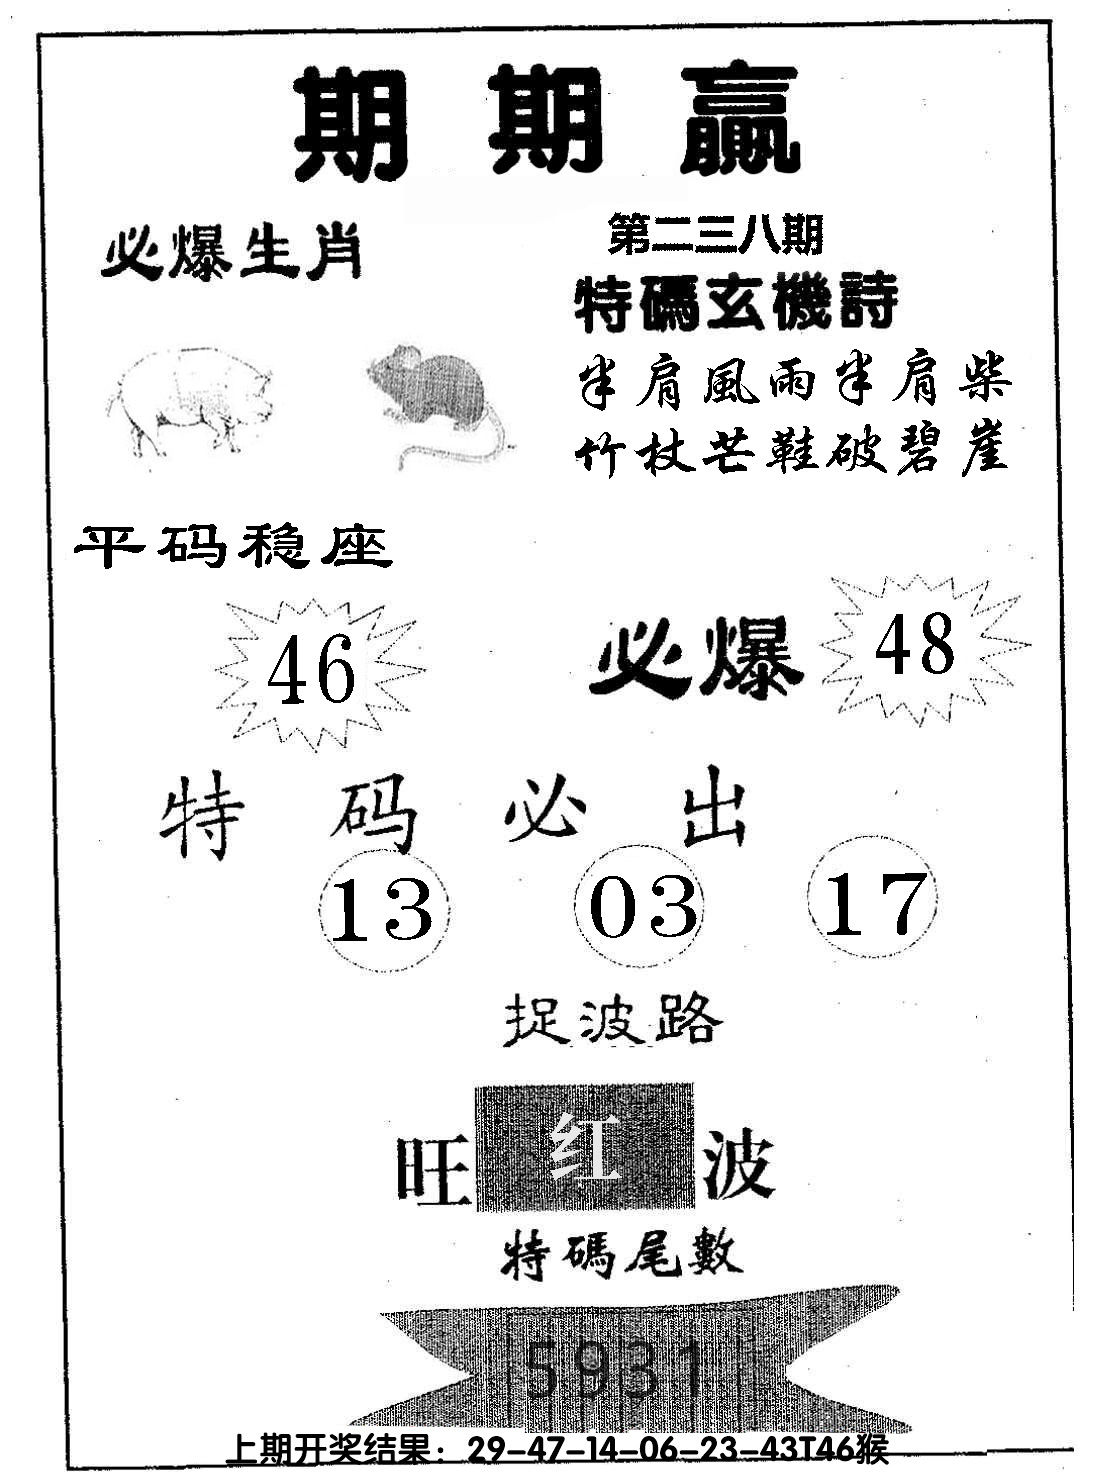 期期贏
必爆生肖
第二三八期
特碼玄機詩
半肩風雨半肩柴
竹杖芒鞋破碧崖
平码稳座
46
必爆 48
特码必出
13 03 17
捉波路
旺 红 波
特碼尾數
5931
上期开奖结果：29-47-14-06-23-43T46猴